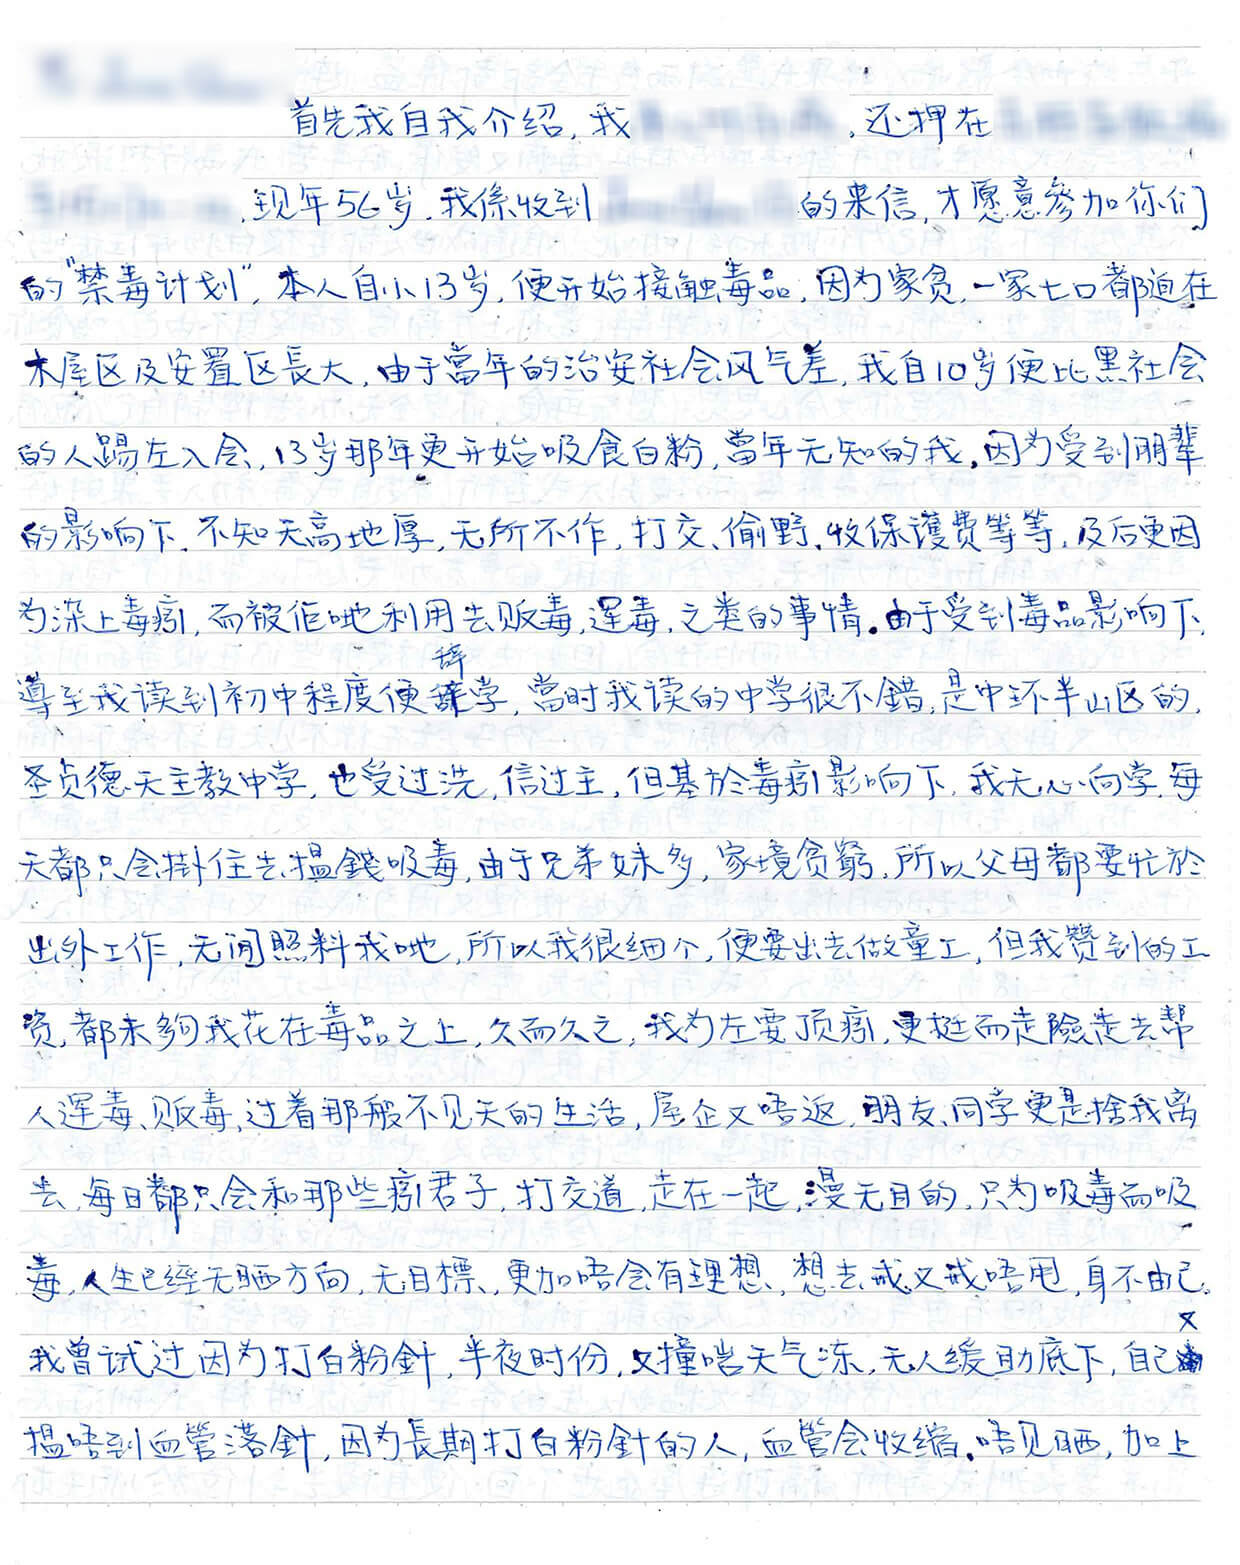 首先我自我介绍,我 ,还押在
,现年56岁.我係收到 的来信,才愿意參加你们
的"禁毒计划",本人自小13岁,便开始接触毒品,因为家贫,一家七口都迫在
木屋区及安置区長大,由于當年的治安社会风气差,我自10岁便比黑社会
的人踢左入会,13岁那年更开始吸食白粉,當年无知的我,因为受到朋辈
的影响下,不知天高地厚,无所不作,打交、偷野、收保護费等等,及后更因
为深上毒瘾,而被佢哋利用去贩毒,運毒,之类的事情。由于受到毒品影响下,
辞
導至我读到初中程度便学,當时我读的中学很不錯,是中环半山区的,
圣贞德天主教中学,也受过洗,信过主,但基於毒瘾影响下,我无心向学,每
天都只会掛住去搵錢吸毒,由于兄弟妹多,家境贫窮,所以父母都要忙於
出外工作,无閒照料我哋,所以我很细个,便要出去做童工,但我赞到的工
资,都未夠我花在毒品之上,久而久之,我为左要顶瘾,更挺而走險走去帮
人運毒、贩毒,过着那般不见天的生活,屋企又唔返,朋友、同学更是捨我离
去,每日都只会和那些瘾君子,打交道,走在一起,漫无目的,只为吸毒而吸
毒,人生已經无晒方向,无目標、更加唔会有理想、想去戒又戒唔甩,身不由己。
我曾试过因为打白粉針,半夜时份,又撞啱天气冻,无人缓助底下,自己又
搵唔到血管落針,因为長期打白粉針的人,血管会收缩,唔见晒,加上